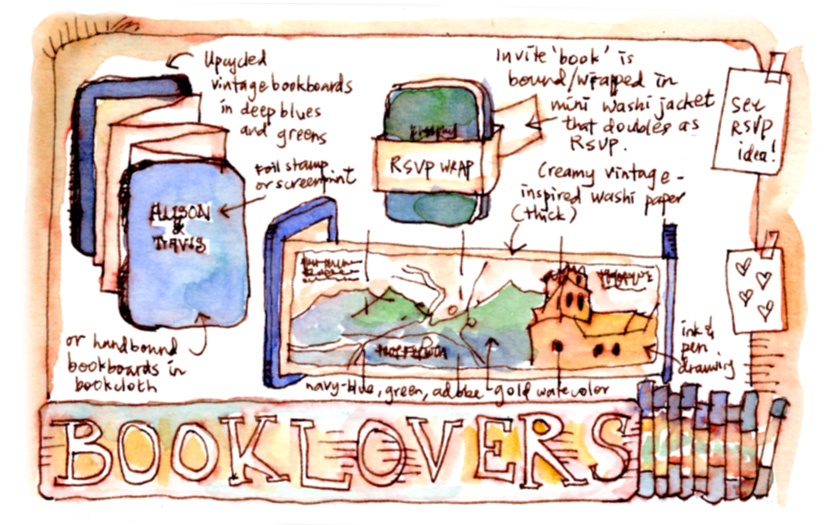 Upcycled
vintage bookboards
in deep blues
and greens
Foil stamp
or screenprint
ALISON
&
TRAVIS
or handbound
bookboards in
bookcloth
RSVP WRAP
Invite 'book' is
bound/wrapped in
mini washi jacket
that doubles as
RSVP.
Creamy vintage-
inspired washi paper
(thick)
See
RSVP
idea!
ink &
pen
drawing
navy-blue, green, adobe-gold watercolor
BOOKLOVERS